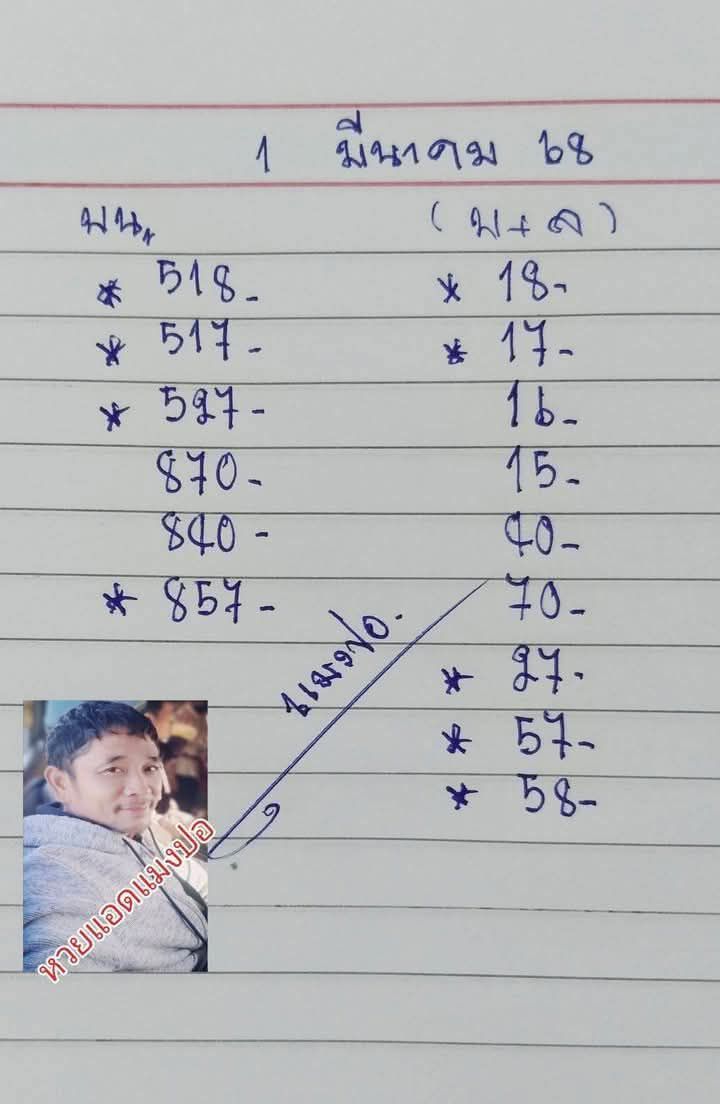 1 มีนาคม 68
บน, (บ+ล)
* 518- * 18-
* 517- * 17-
* 527- 16-
870- 15-
840- 40-
* 857- 70-
แมงปอ.
* 27-
* 57-
* 58-
หวยแอดแมงปอ